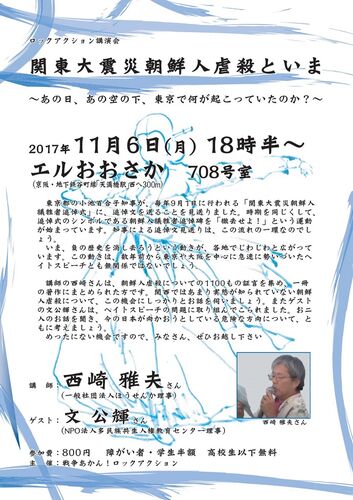 ロックアクション講演会
関東大震災朝鮮人虐殺といま
～あの日、あの空の下、東京で何が起こっていたのか？～
2017年11月6日(月) 18時半～
エルおおさか 708号室
(京阪・地下鉄谷町線 天満橋駅 西へ300m)
東京都の小池百合子知事が、毎年9月1日に行われる「関東大震災朝鮮人
犠牲者追悼式」に、追悼文を送ることを見送りました。時期を同じくして、
追悼式のシンボルである朝鮮人犠牲者追悼碑を「撤去せよ！」という運動
が始まっています。知事による追悼文見送りは、この流れの一環なのでし
ょう。
いま、負の歴史を消し去ろうという動きが、各地でじわじわと広がって
います。この動きは、数年前から東京や大阪を中心に急速に勢いづいたヘ
イトスピーチとも無関係ではないでしょう。
講師の西崎さんは、朝鮮人虐殺についての1100もの証言を集め、一冊
の著作にまとめられた方です。関西ではあまり実態が知られていない朝鮮
人虐殺について、この機会にしっかりとお話を伺いましょう。またゲスト
の文公輝さんは、ヘイトスピーチの問題に取り組んでこられました。お二
人のお話を聞き、今の日本が向かおうとしている危険な方向について、と
もに考えましょう。
めったにない機会ですので、みなさん、ぜひお越し下さい
講師：西崎 雅夫さん
(一般社団法人ほうせんか理事)
西崎 雅夫さん
ゲスト：文 公輝さん
(NPO法人多民族共生人権教育センター理事)
参加費：800円 障がい者・学生半額 高校生以下無料
主催：戦争あかん！ロックアクション